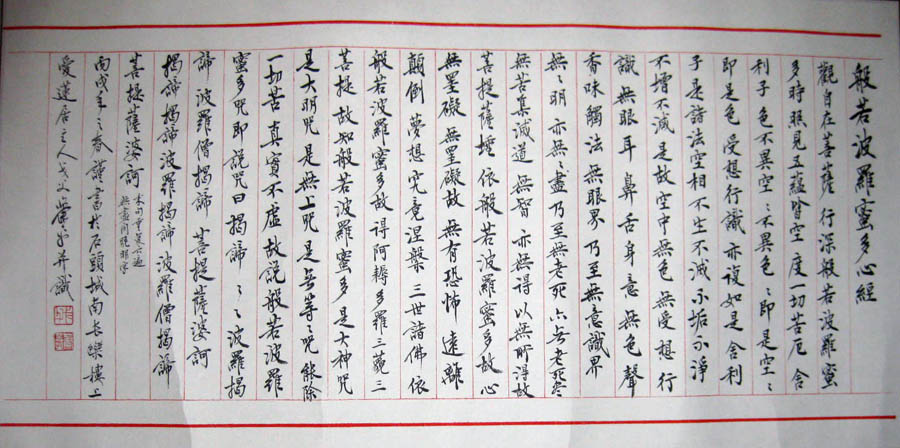 般若波羅蜜多心經
觀自在菩薩行深般若波羅蜜
多時照見五蘊皆空度一切苦厄舍
利子色不異空〻不異色〻即是空〻
即是色受想行識亦復如是舍利
子是諸法空相不生不滅不垢不淨
不增不減是故空中無色無受想行
識無眼耳鼻舌身意無色聲
香味觸法無眼界乃至無意識界
無〻明亦無〻盡乃至無老死亦無老死盡
無苦集滅道無智亦無得以無所得故
菩提薩埵依般若波羅蜜多故心
無罣礙無罣礙故無有恐怖遠離
顛倒夢想究竟涅槃三世諸佛依
般若波羅蜜多故得阿耨多羅三藐三
菩提故知般若波羅蜜多是大神咒
是大明咒是無上咒是無等〻咒能除
一切苦真實不虛故說般若波羅
蜜多咒即說咒曰揭諦〻〻波羅揭
諦波羅僧揭諦菩提薩婆訶
揭諦揭諦波羅揭諦波羅僧揭諦
菩提薩婆訶
無盡間脱明字
丙戌年之春謹書於石頭城南長樂樓上
愛蓮居主人并識